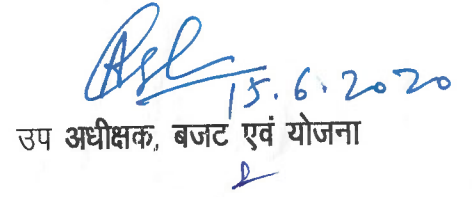 15.6.2020
उप अधीक्षक, बजट एवं योजना